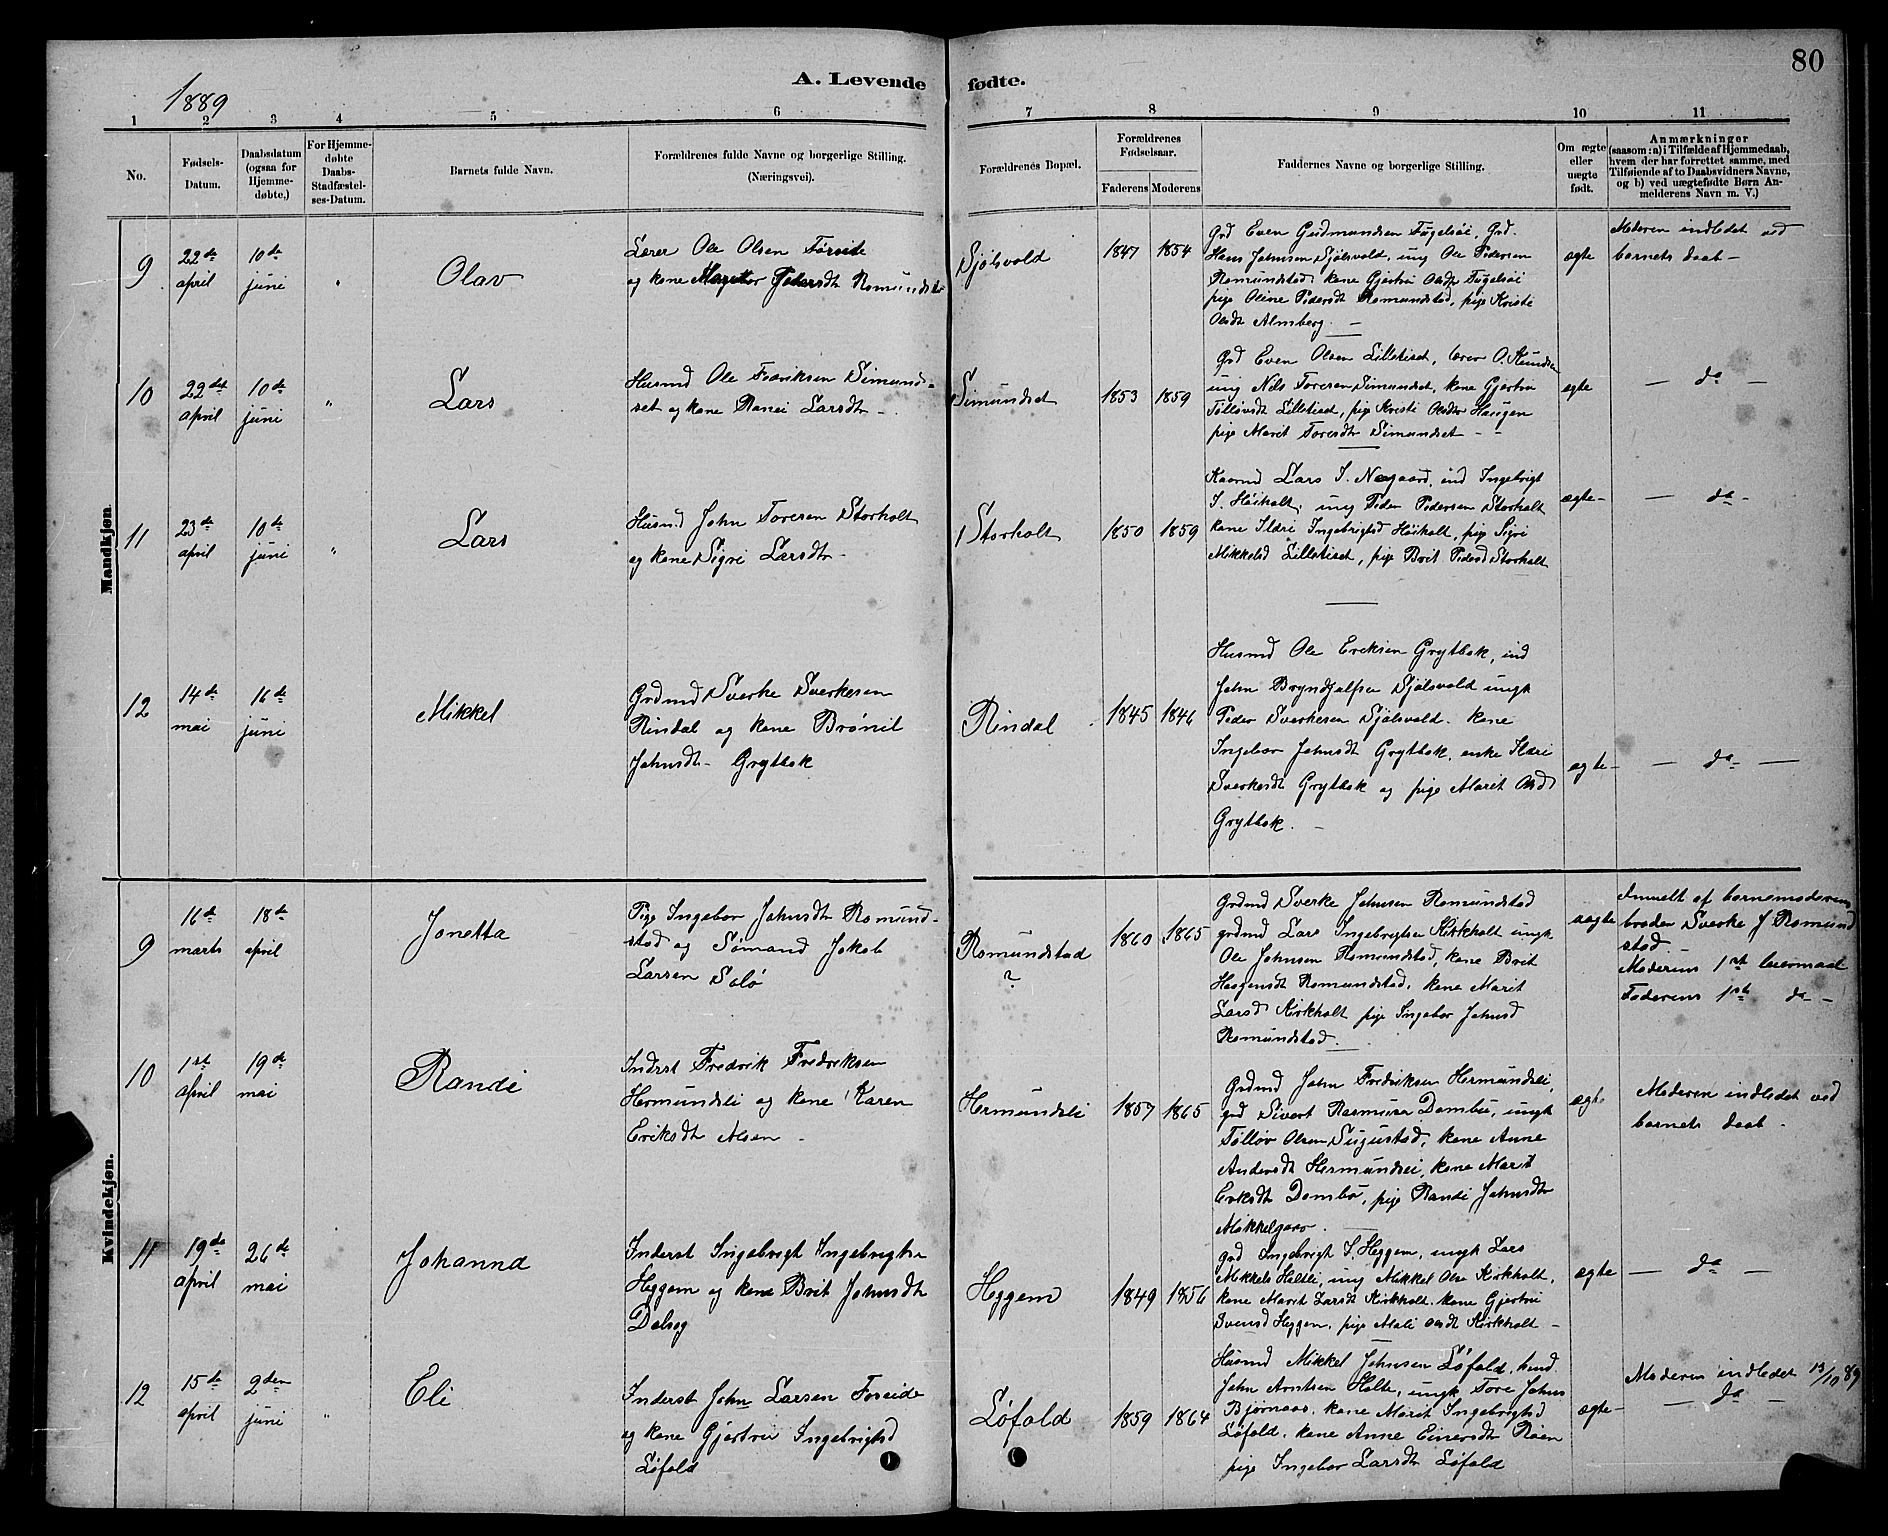 80
A. Levende fødte.
1889
1 2 3 4 5 6 7 8 9 10 11
No.
Fødsels-
Datum.
Daabsdatum
(ogsaa for
Hjemme-
døbte,)
For Hjemme-
døbte
Daabs-
Stadfæstel-
ses-Datum.
Barnets fulde Navn.
Forældrenes fulde Navne og borgerlige Stilling.
(Næringsvei).
Forældrenes Bopæl.
Forældrenes
Fødselsaar.
Faderens Moderens
Faddernes Navne og borgerlige Stilling.
Om ægte
eller
uægte
født.
Anmærkninger
(saasom: a) i Tilfælde af Hjemmedaab,
hvem der har forrettet samme, med
Tilføiende af to Daabsvidners Navne,
og b) ved uægtefødte Børn An-
melderens Navn m. V.)
Mandkjøn.
9
22de
april
10de
juni
Olav
Lærer Ole Olsen Forseide
og kone Pedersdt Romundstad
Sjølsvold
1847 1854
Grd Even Gudmundsen Fugelsøi, Grd.
Hans Johnsen Sjølsvold, ung Ole Pedersen
Romundstad, kone Gjertru Olsdt Fugelsøi
pige Oline Pedersdt Romundstad, pige Kristi
Olsdt Almberg. —
ægte
Moderen indledet ved
barnets daab —
10
22de
april
10de
juni
"
Lars
Husmd Ole Fredriksen Simund-
set og kone Randi Larsdtr —
Simundset
1853 1859
Grd Even Olsen Lilletiset, lærer O. Knudsen
ung Nels Toresen Simundset, kone Gjertru
Tølløvsdt Lilletiset, pige Kristi Olsdtr Haugen
pige Marit Toresdtr Simundset — -
ægte
— do —
11
23de
april
10de
juni
"
Lars
Husmd John Toresen Storholt
og kone Sigri Larsdtr —
Storholt
1850 1859
Kaarmd Lars I. Nergaard, ind Ingebrigt
I. Høiholt, ung Peder Pedersen Storholt
kone Ildri Ingebrigtsd Høiholt, pige Sigri
Mikkelsd Lilletiset, pige Brit Pedersd Storholt
ægte —
— do —
12
14de
mai
16de
juni
Mikkel
Grdmd Sverke Sverkesen
Rindal og kone Brønil
Johnsdt — Grytbak
Rindal
1845 1846
Husmd Ole Eriksen Grytbak, ind
John Bryndjulfsen Sjølsvold ungk
Peder Sverkesen Sjølsvold. kone
Ingebor Johnsdt Grytbak, enke Ildri
Sverkesdt Grytbak og pige Marit Olsd
Grytbak. —
ægte —
— do —
Kvindekjøn.
9
16de
marts
18de
april
Jonetta
Pige Ingebor Johnsdtr Romund-
stad og Sømand Jakob
Larsen Solø
Romundstad
?
1860 1865
Grdmd Sverke Johnsen Romundstad
grdmd Lars Ingebrigtsen Kirkholt ungk
Ole Johnsen Romundstad, kone Brit
Haagensdt Romundstad, kone Marit
Larsd Kirkholt pige Ingebor Johnsd
Romundstad. —
uægte
Anmelt af barnemoderens
broder Sverke J Romund
stad
Moderens 1st leiermaal
Faderens 1ste do —
10
1st
april
19de
mai
Randi
Inderst Fredrik Fredriksen
Hermundsli og kone Karen
Eriksdt Alsen —
Hermundsli
1857 1865
Grdmd John Fredriksen Hermundsli,
grd Sivert Rasmusen Dombu, ungk
Tølløv Olsen Sugustad, kone Anne
Andersdt Hermundsli, kone Marit
Eriksdt Dombu, pige Randi Johnsdtr
Mikkelgaar. —
ægte
Moderen indledet ved
barnets daab —
11
19de
april
26de
mai
Johanna
Inderst Ingebrigt Ingebrigtsen
Heggem og kone Brit Johnsdtr
Dalseg
Heggem
1849 1856
grd Ingebrigt I. Heggem, ungk Lars
Mikkels Holtli, ung Mikkel Olsen Kirkholt,
kone Marit Larsdt Kirkholt, kone Gjertru
Svensd Heggem, pige Mali Olsdt Kirkholt —
ægte
— do —
12
15de
april
2den
juni
"
Eli
Inderst John Larsen Foseide
og kone Gjertru Ingebrigtsd
Løfald
Løfald
1859 1864
Husmd Mikkel Johnsen Løfald,
John Arntsen Holte, ungk Tore Johns
Bjørnaas, kone Marit Ingebrigtsd
Løfald, kone Anne Einersdtr Røen
pige Ingebor Larsdtr Løfald
ægte —
Moderen indledet 13/10 89
— do —